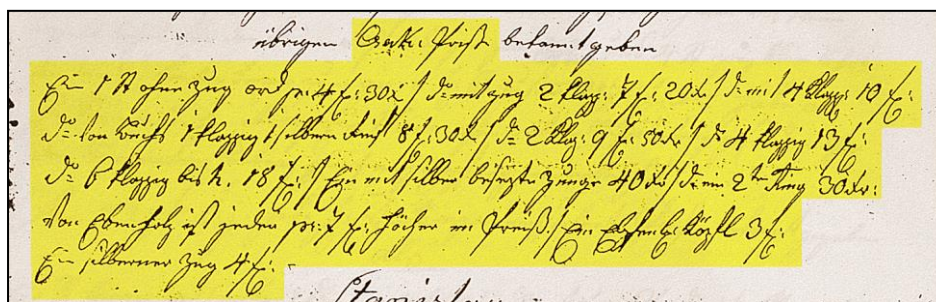 übrigen Csak: Preise bekantgeben
Ein 1 St ohne Zug ord pr: 4 f: 30x / do mit Zug 2 Klap: 7 f: 20x / do mit 4 Klapp: 10 f:
do von Buchs 1 klappig 1 silbern 8 f: 30x / do 2 Klap: 9 f: 50x / do 4 klappig 13 f:
do 6 klappig bis h. 18 f: / Ein mit silber besezte Zunge 40x / do ein 2ter Ring 30x:
von Ebenholz ist jeder pr: 7 f: höcher im Preiß. / Ein Köpfl 3 f:
Ein silberner Zug 4 f: